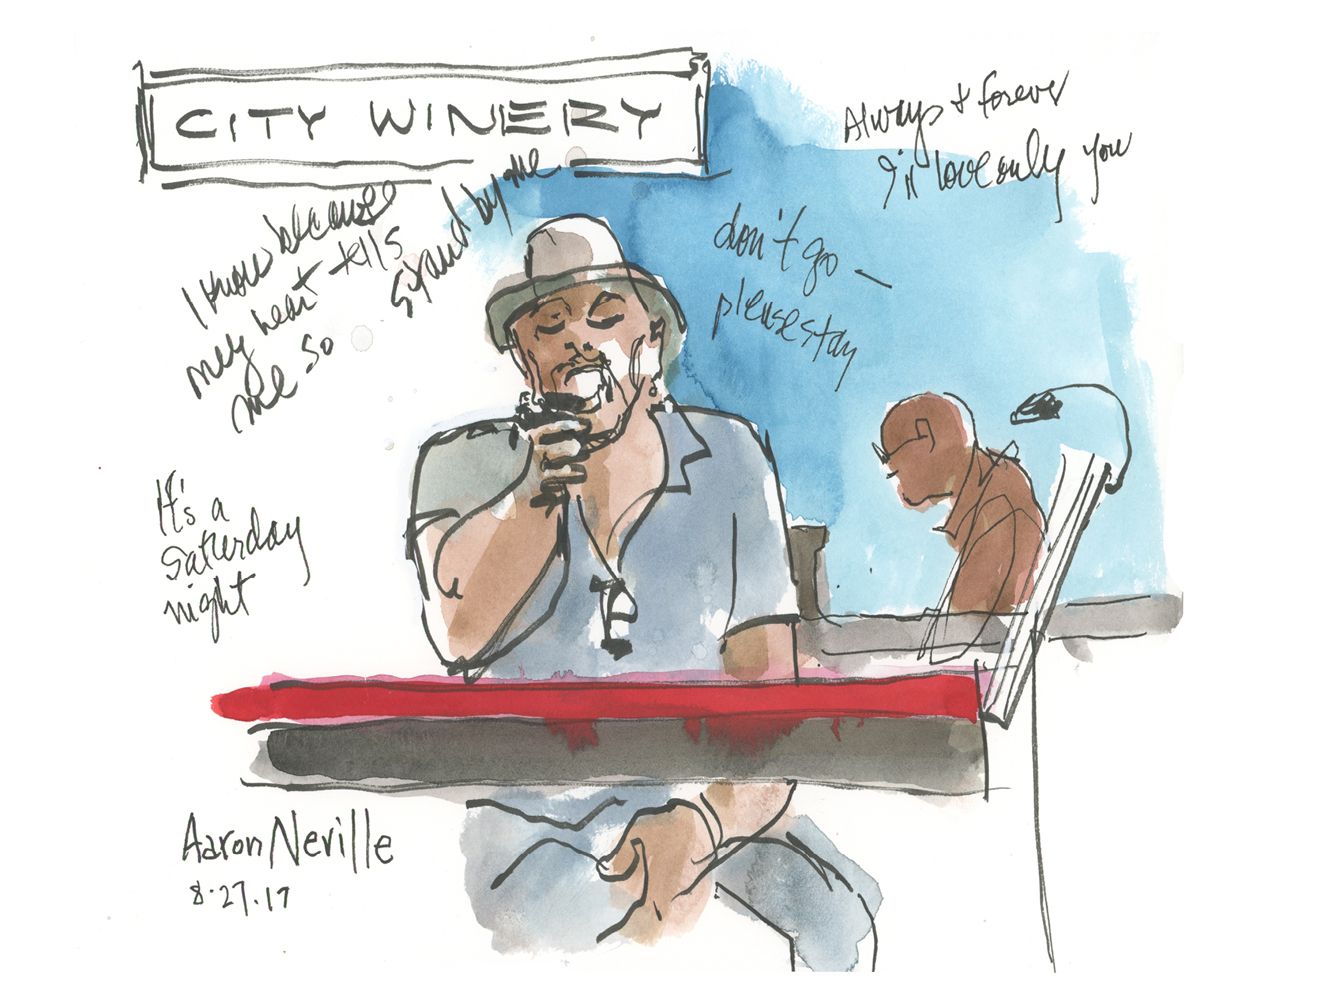 CITY WINERY
Always & forever
I'll love only you
I know because
my heart tells
me so
stand by me.
don't go —
please stay
It's a
Saturday
night
Aaron Neville
8.27.17